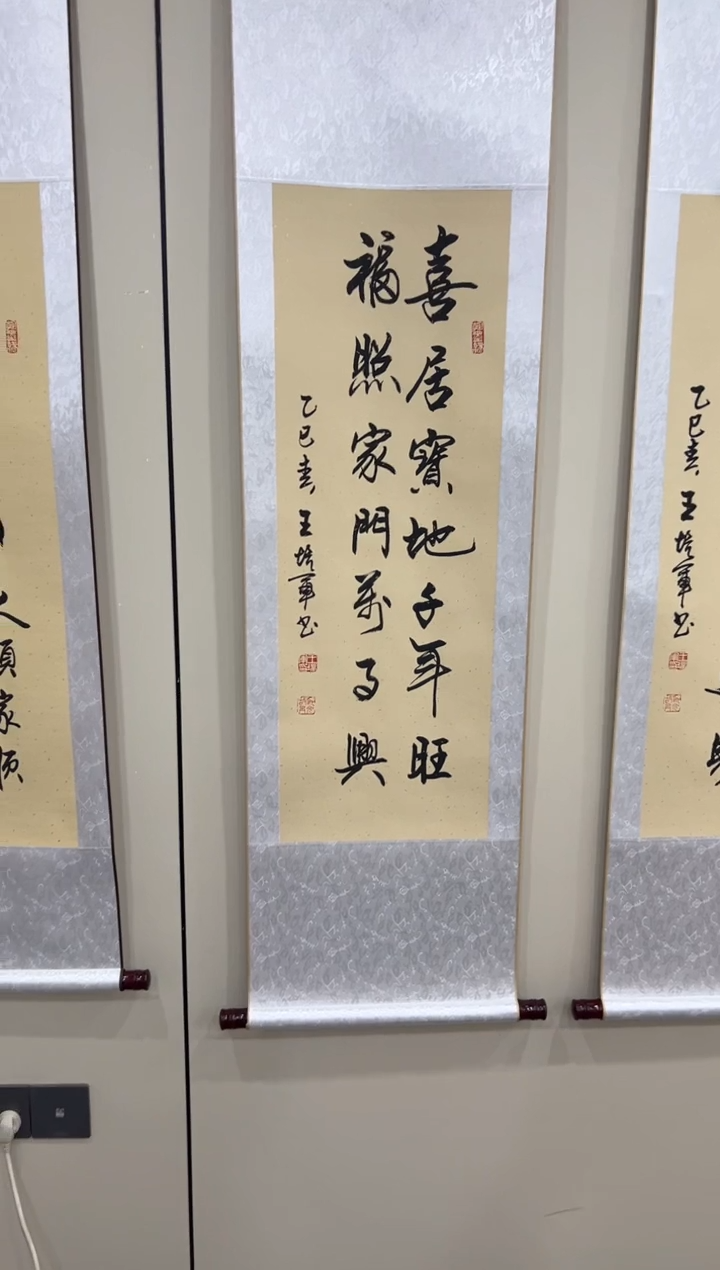 喜居寶地千年旺
福照家門萬事興
乙巳春 王培軍书
大順家順
乙巳春 王培軍书